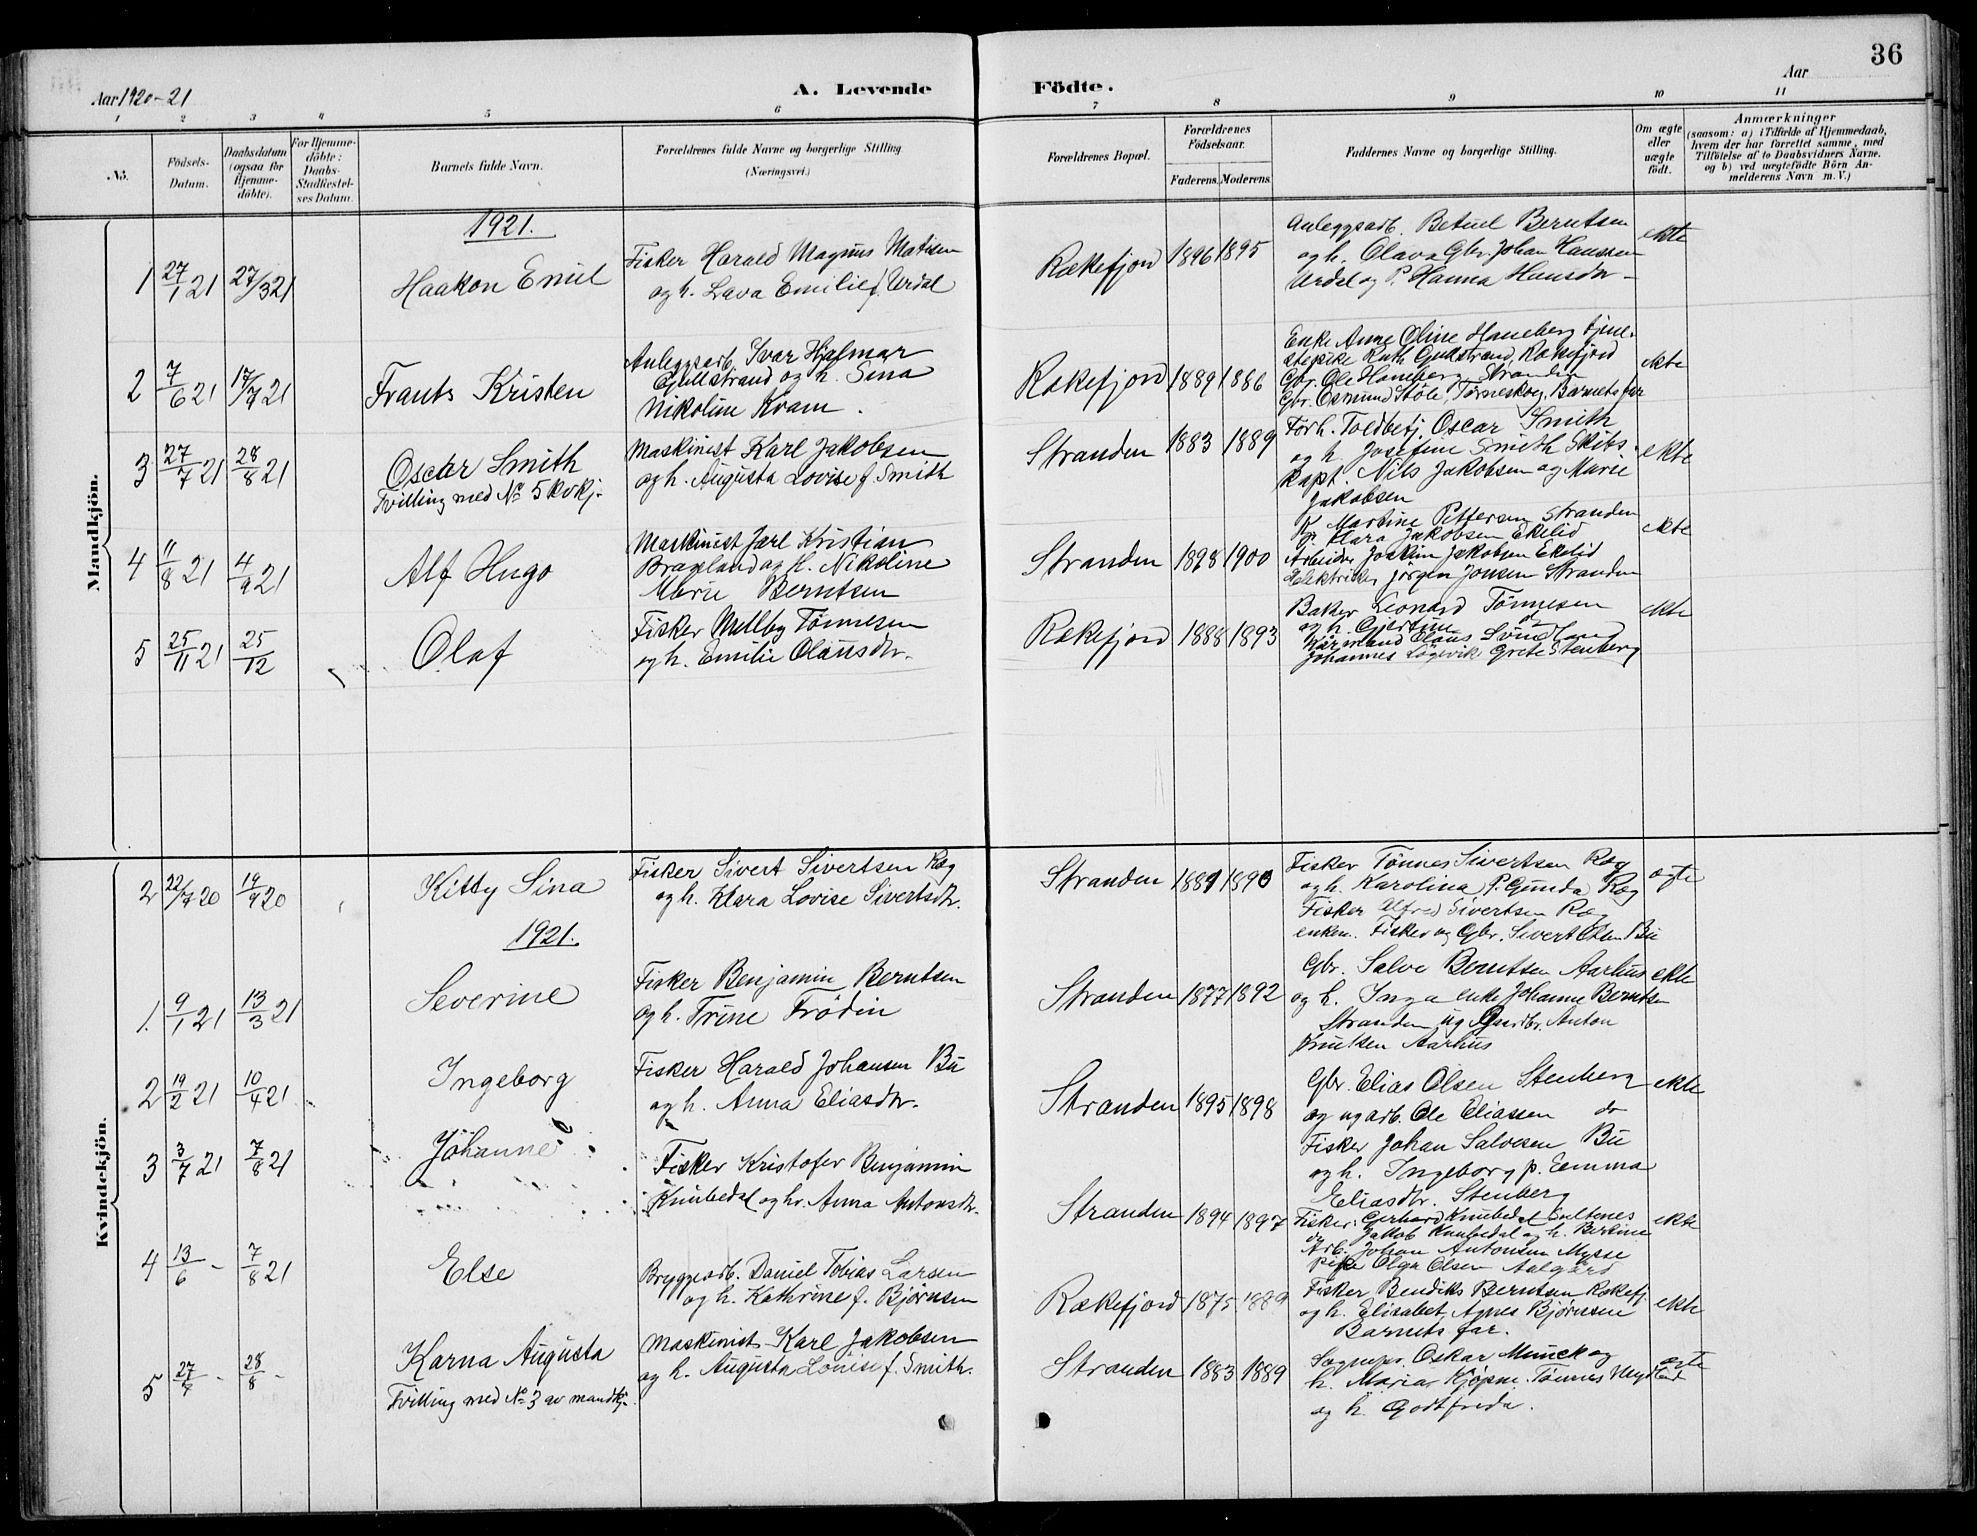 36
Aar 1920-21
A. Levende Födte.
Aar
1 2 3 4 5 6 7 8 9 10 11
No.
Födsels-Datum.
Daabsdatum (ogsaa for Hjemmedöbte).
For Hjemmedöbte: Daabs-Stadfæstelses Datum.
Barnets fulde Navn.
Forældrenes fulde Navne og borgerlige Stilling. (Næringsvei.)
Forældrenes Bopæl.
Forældrenes Födselsaar.
Faderens. Moderens.
Faddernes Navne og borgerlige Stilling.
Om ægte eller uægte födt.
Anmærkninger
(saasom: a) i Tilfælde af Hjemmedaab, hvem der har forrettet samme, med Tilföielse af to Daabsvidners Navne. og b) ved uægtefödte Börn Anmelderens Navn m. V.)
Mandkjön.
1921.
1 27/1 21 27/3 21 Haakon Emil
Fisker Harald Magnus Matisen
og h. Lava Emilie f. Urdal
Rækefjord 1896 1895
Anleggsarb. Betuel Berntsen
og h. Olava Gbr. Johan Hanssen
Urdal og P. Hanna Hansdtr
ekte
2 7/6 21 17/7 21 Frants Kristen
Anleggsarb. Ivar Hjalmar
Gullstrand og h. Sina
Nikoline Kvam.
Rækefjord 1889 1886
Enke Anne Oline Haneberg tjene-
stepike Ruth Gullstrand, Rækefjord
Gbr. Ole Haneberg Stranden
Gbr. Osmund Støle, Tørneskog, Barnets far
ekte
3 27/7 21 28/8 21 Oscar Smith
Tvilling med No 5 kvkj.
Maskinist Karl Jakobsen
og h. Augusta Lovise f. Smith
Stranden 1883 1889
Forh. Toldbetj. Oscar Smith
og h. Josefine Smith Skibs-
kapt. Nils Jakobsen og Marie
Jakobsen
ekte
4 11/8 21 4/9 21 Alf Hugo
Maskinist Jarl Kristian
Bragland og h. Nikoline
Marie Berntsen
Stranden 1898 1900
Martine Pettersen Stranden
Klara Jakobsen Ekelid
Arbeider Joakim Jakobsen Ekelid
Elektriker Jørgen Jonsen Stranden
ekte
5 25/11 21 25/12 Olaf
Fisker Melby Tønnesen
og h. Emilie Olausdtr.
Rækefjord 1888 1893
Baker Leonard Tønnesen
og h. Gjertine do
Olaus
Johannes Løgevik Grete Stenberg
ekte
Kvindekjön.
2 22/7 20 19/9 20 Kitty Sina
Fisker Sivert Sivertsen Ræg
og h. Klara Lovise Sivertsdtr.
Stranden 1889 1890
Fisker Tønnes Sivertsen Ræg
og h. Karolina P. Gunda Ræg
Fisker Alfred Sivertsen Ræg
enkem. Fisker og Gbr. Sivert Olsen Bu
ægte
1921.
1. 9/1 21 13/3 21 Severine
Fisker Benjamin Berntsen
og h. Trine Frödin
Stranden 1877 1892
Gbr. Salve Berntsen Aarhus
og h. Inga enke Johanne Berntsen
Stranden Anton
Knutsen Aarhus
ekte
2 19/2 21 10/4 21 Ingeborg
Fisker Harald Johansen Bu
og h. Anna Eliasdtr.
Stranden 1895 1898
Gbr. Elias Olsen Stenberg
og ugarb. Ole Eliassen do
Fisker Johan Salvesen Bu
og h. Ingeborg p. Emma
Eliasdtr. Stenberg
ekte
3 3/7 21 7/8 21 Johanne
Fisker Kristofer Benjamin
Knubedal og h. Anna Antonsdtr.
Stranden 1894 1897
Fisker Gerhard Knubedal
do Jakob Knubedal og h. Bertine
Arb. Johan Antonsen Mysse
pike Olga Olsen Aalgård
ekte
4 13/6 - 7/8 21 Else
Bryggearb. Daniel Tobias Larsen
og h. Kathrine f. Bjørnsen
Rækefjord 1875 1889
Fisker Bendiks Berntsen Rækefj
og h. Elisabet, Agnes Bjørnsen
Barnets far.
ekte
5 27/7 - 28/8 - Karna Augusta
Tvilling med No 3 av mandkj.
Maskinist Karl Jakobsen
og h. Augusta Louise f. Smith.
Stranden 1883 1889
Oskar Munck og
h. Maria Kjøpm. Tønnes
og h. Godtfreda.
ægte